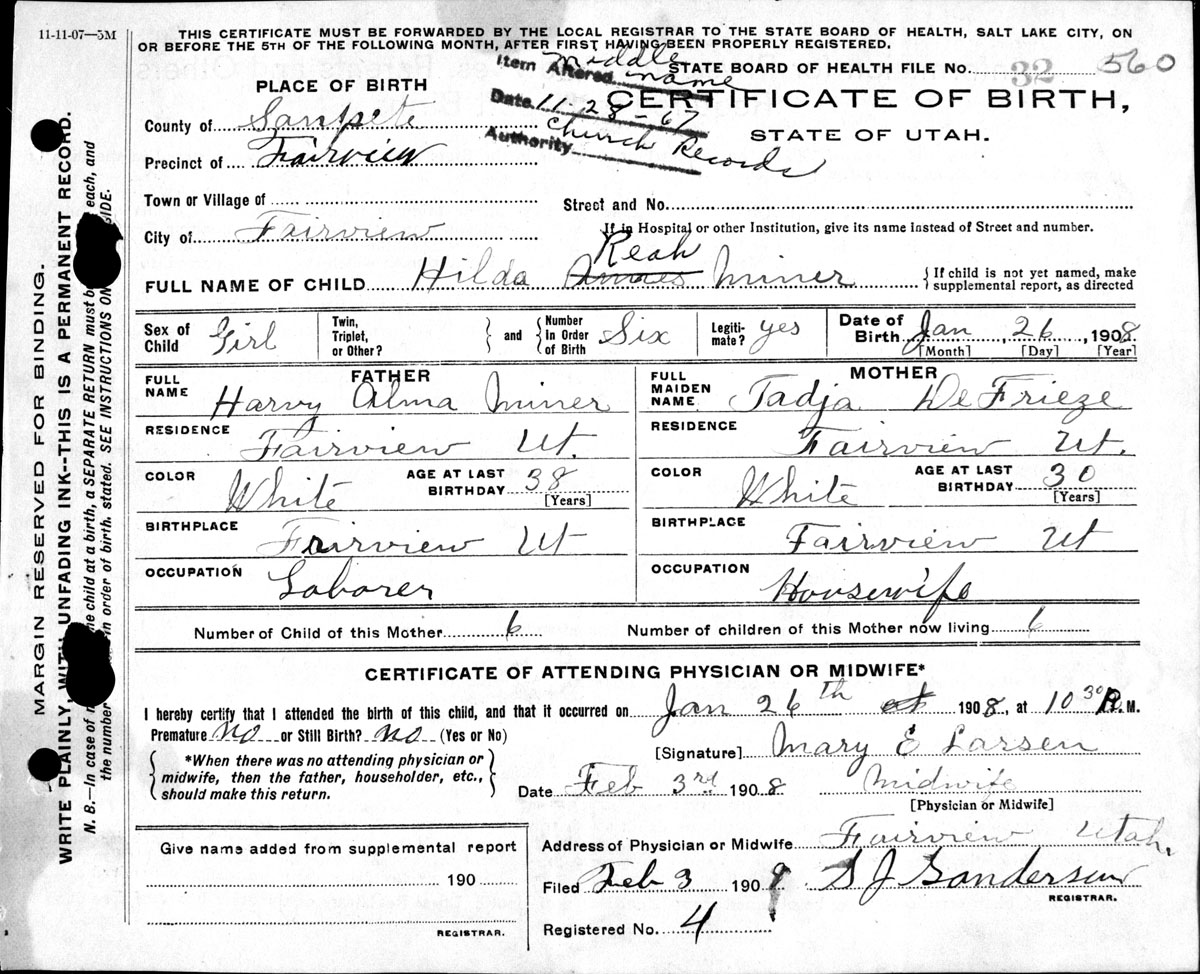 11-11-07—5M
THIS CERTIFICATE MUST BE FORWARDED BY THE LOCAL REGISTRAR TO THE STATE BOARD OF HEALTH, SALT LAKE CITY, ON
OR BEFORE THE 5TH OF THE FOLLOWING MONTH, AFTER FIRST HAVING BEEN PROPERLY REGISTERED.
Item Altered middle name
Date 11-28-67
Authority Church Records
STATE BOARD OF HEALTH FILE No. 32 560
CERTIFICATE OF BIRTH,
STATE OF UTAH.
PLACE OF BIRTH
County of Sanpete
Precinct of Fairview
Town or Village of
City of Fairview
Street and No.
If in Hospital or other Institution, give its name instead of Street and number.
Reah
FULL NAME OF CHILD Hilda Miner
{If child is not yet named, make
supplemental report, as directed
Sex of Child Girl
Twin, Triplet, or Other? } and { Number In Order of Birth Six
Legiti- mate? yes
Date of Birth Jan 26 1908
[Month] [Day] [Year]
FATHER
FULL NAME Harvy Alma Miner
RESIDENCE Fairview Ut.
COLOR White AGE AT LAST BIRTHDAY 38 [Years]
BIRTHPLACE Fairview Ut
OCCUPATION Laborer
MOTHER
FULL MAIDEN NAME Tadja DeFrieze
RESIDENCE Fairview Ut.
COLOR White AGE AT LAST BIRTHDAY 30 [Years]
BIRTHPLACE Fairview Ut
OCCUPATION Housewife
Number of Child of this Mother 6 Number of children of this Mother now living 6
CERTIFICATE OF ATTENDING PHYSICIAN OR MIDWIFE*
I hereby certify that I attended the birth of this child, and that it occurred on Jan 26th at 1908, at 10 30 P.M.
Premature no or Still Birth? no (Yes or No)
{ *When there was no attending physician or
midwife, then the father, householder, etc.,
should make this return. }
[Signature] Mary E Larsen
Date Feb 3rd 1908 Midwife
[Physician or Midwife]
Address of Physician or Midwife Fairview Utah.
Filed Feb 3 1909 S J Sanderson
REGISTRAR.
Registered No. 4
Give name added from supplemental report
190
REGISTRAR.
MARGIN RESERVED FOR BINDING.
WRITE PLAINLY, WITH UNFADING INK--THIS IS A PERMANENT RECORD.
N. B.—In case of child at a birth, a SEPARATE RETURN must be each, and
the number in order of birth, stated. SEE INSTRUCTIONS ON